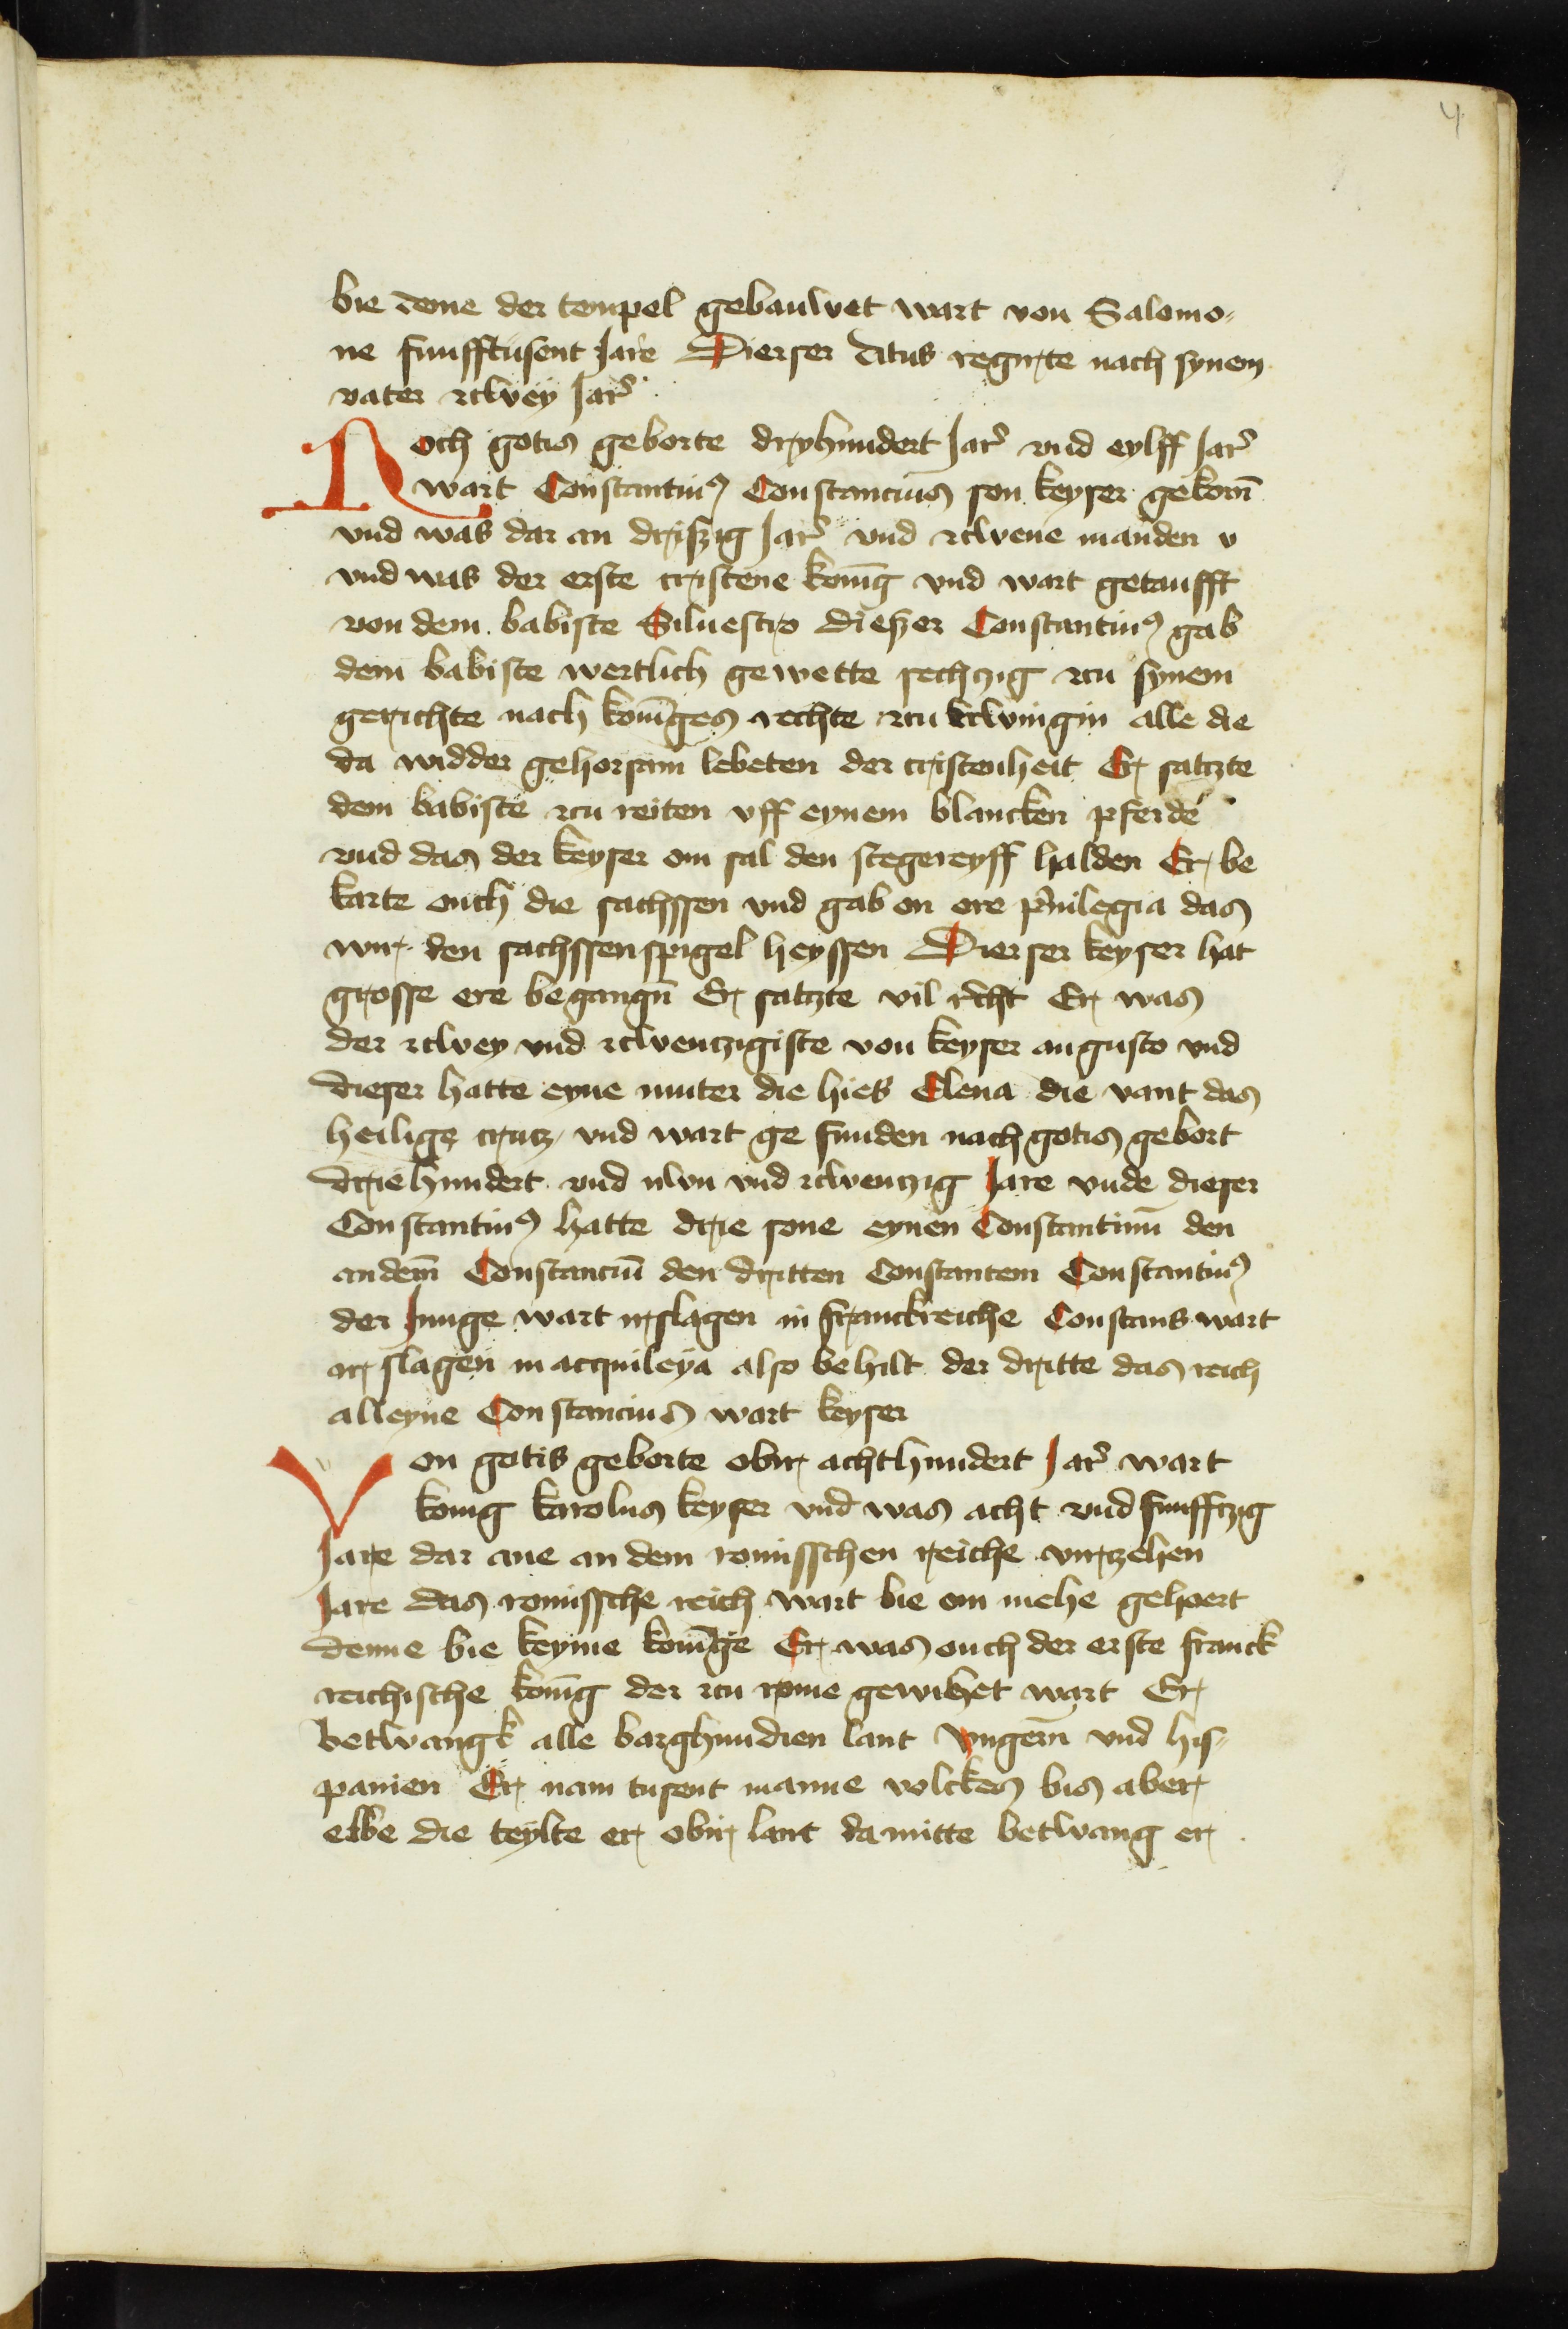 4
bie deme der tempel gebauwet wart von Salomo⸗
ne funfftusent Jare Dierser titus regirte nach synem
vater zcwey Jar̉
Noch gotis geborte dryhundert Jar̉ vnd eylff Jar̉
wart Constantinꝰ Constancius son keyser gekorn̄
vnd was dar an driszig Jar̉ vnd zcwene manden v
vnd was der erste cristene konīg vnd wart getaufft
von dem babiste Siluestro dieszer Constantinꝰ gab
dem babiste wertlich gewette sechzig zcu synem
gerichte nach konīges rechte zcu zcwingin alle die
da widder gehorsam lebeten der cristenheit Er satzte
dem babiste zcu reiten vff eynem blancken pferde
vnd das der keyser om sal den stegereyff halden Er be
karte ouch die sachssen vnd gab on ere p̉uilegia das
wir den sachssenspigel heyssen Dierser keyser hat
grosse ere begangn̄ Er satzte vil r̉cht Er was
der zcwey vnd zcwentzigiste von keyser augusto vnd
dieser hatte eyne muter die hies Elena die vant das
heilige crutz vnd wart ge funden nach gotis gebort
driehundert vnd nwn vnd zcwentzig Jare vnde dieser
Constantinꝰ hatte drie sone eynen Constantinū den
andern̄ Constanciū den dritten Constantem Constantinꝰ
der Junge wart irslagen in franckreiche Constans wart
irslagen in acquileya also behilt der dritte das reich
alleyne Constancius wart keyser
Von gotis geborte obir achthundert Jar̉ wart
konig karolus keyser vnd was acht vnd funfftzig
Jare dar ane an dem romisschen reiche virtzehen
Jare das romissche reich wart bie om mehe gehoert
denne bie keyme konīge Er was ouch der erste franck
reichische konīg der zcu rome gewihet wart Er
betwangk alle barghundien lant Vngern̄ vnd his⸗
panien Er nam tusent manne volckes bis aber
elbe die teylte er obir lant da mitte betwang er